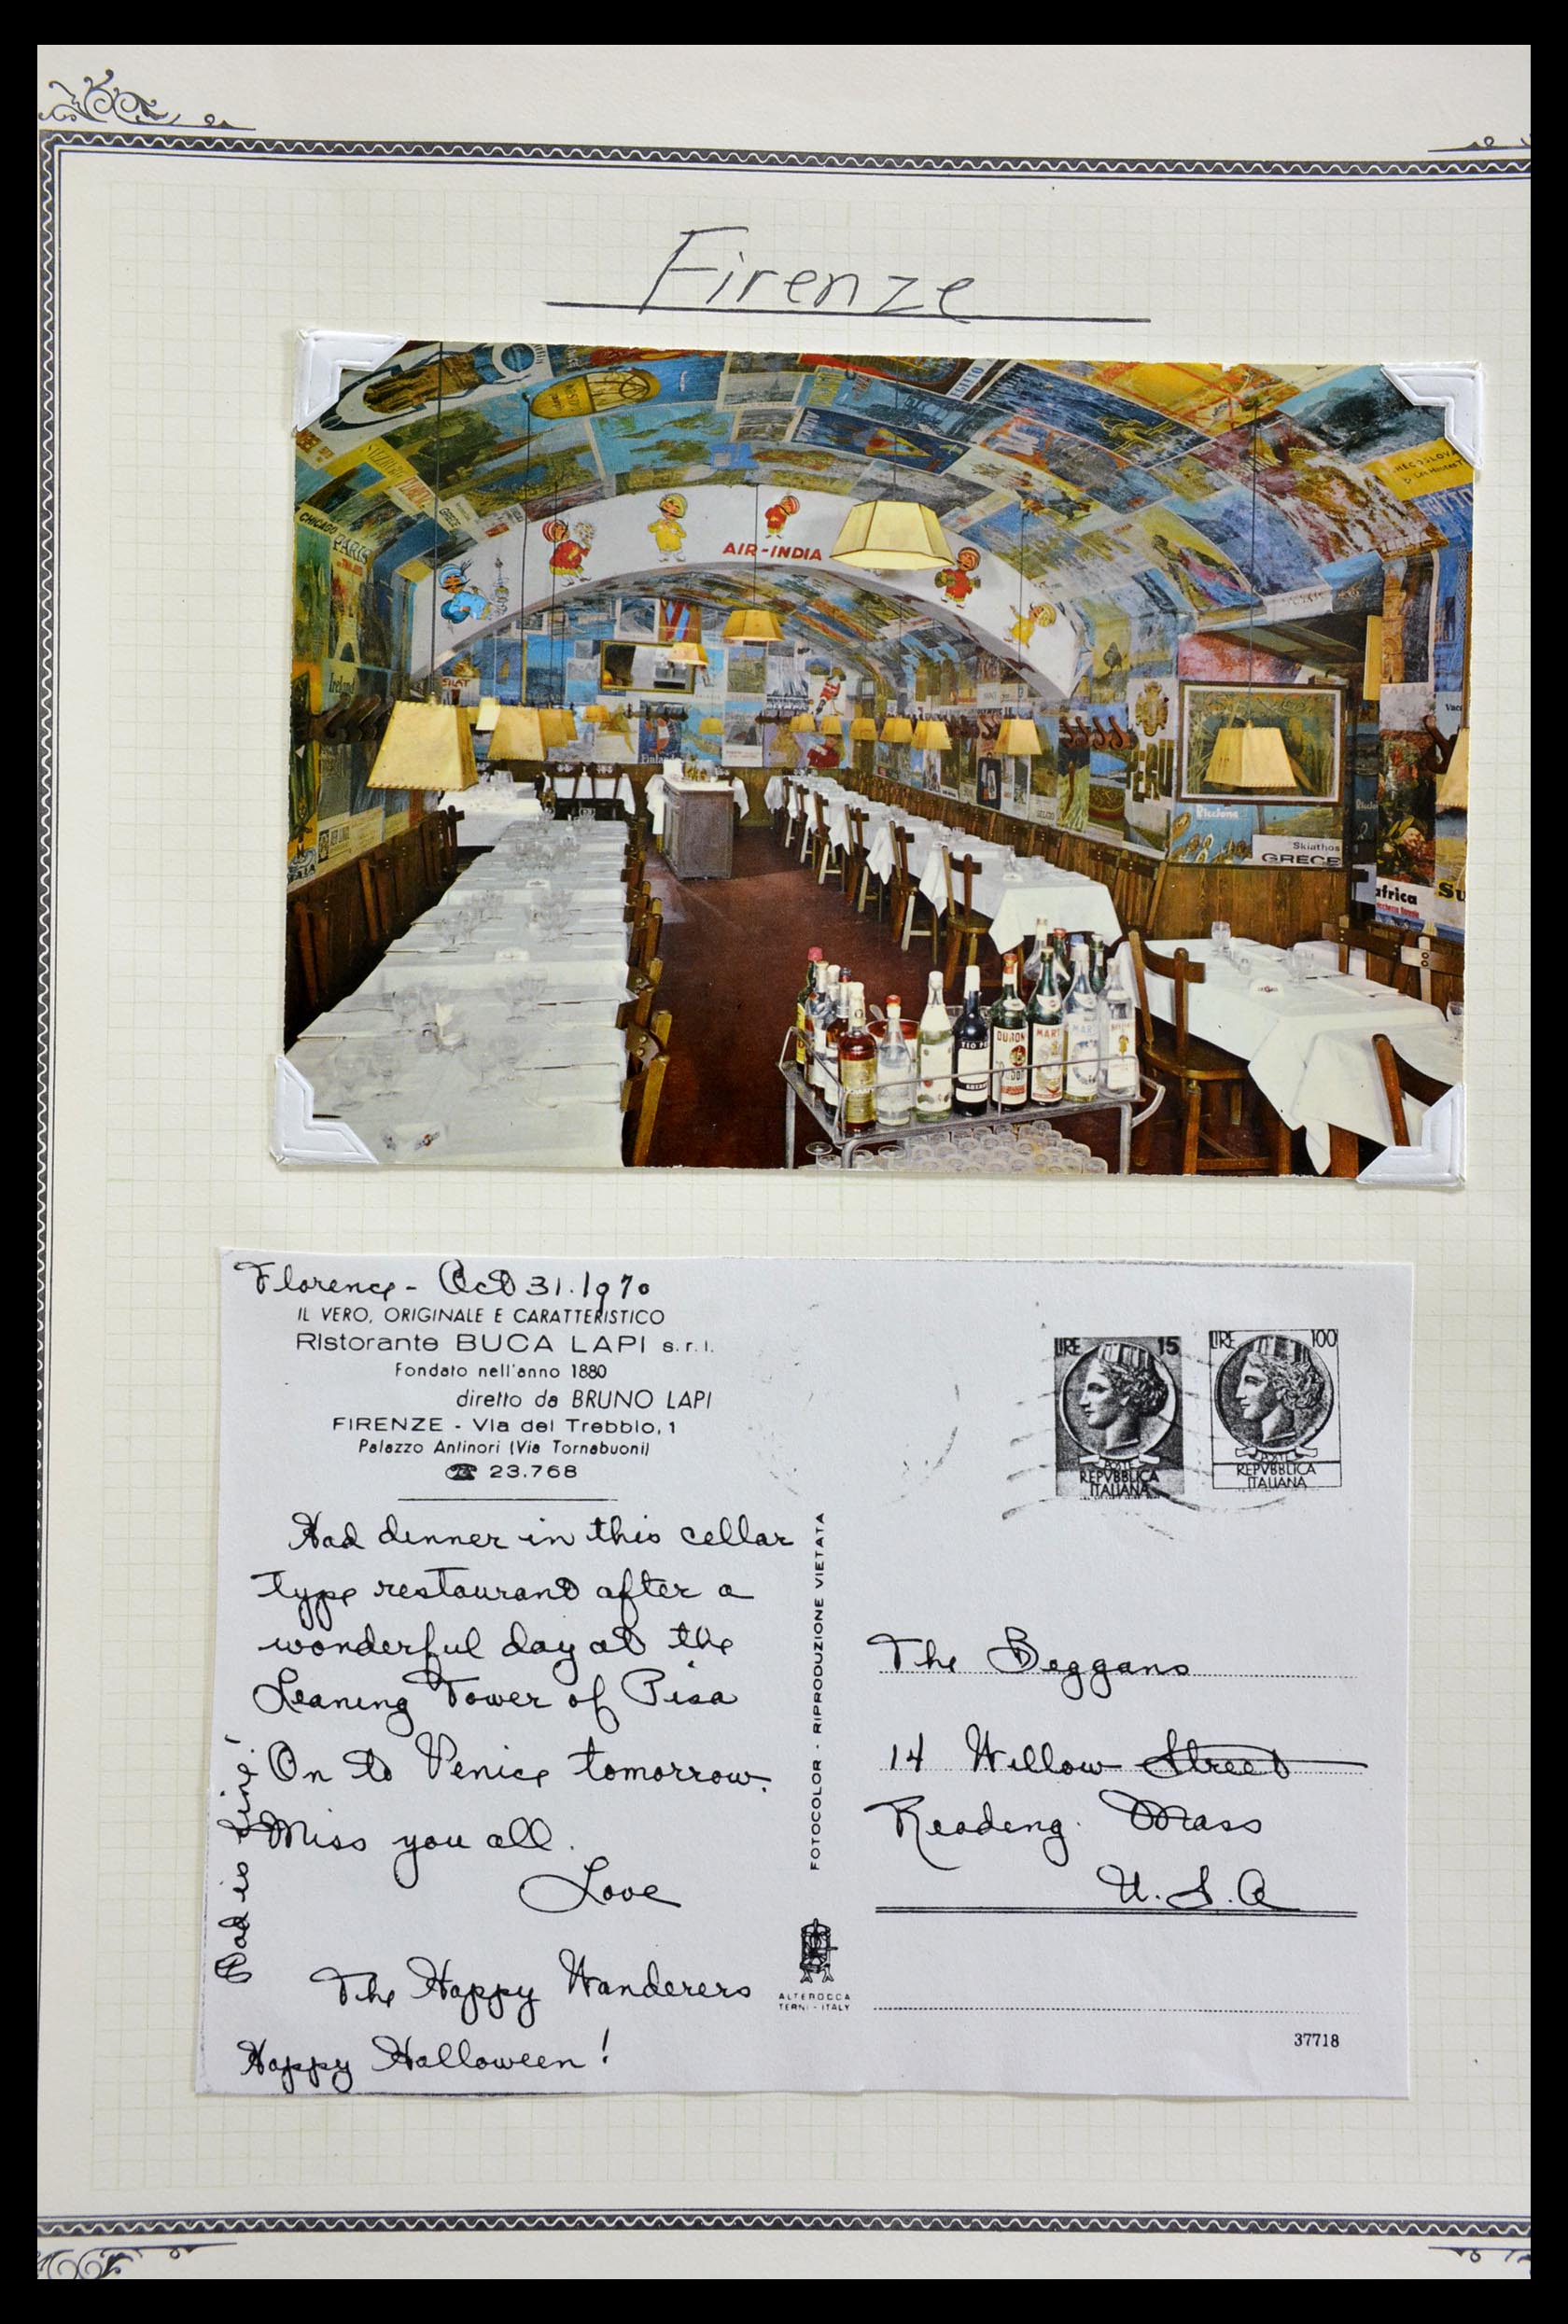 Firenze
CHICAGO
PARIS
Ireland
AIR-INDIA
PERU
Riccione
Skiathos
GRECE
africa
Su
MART
Florence - Oct 31. 1970
IL VERO, ORIGINALE E CARATTERISTICO
RIstorante BUCA LAPI s.r.l.
Fondato nell'anno 1880
diretto da BRUNO LAPI
FIRENZE - Via del Trebbio, 1
Palazzo Antinori (Via Tornabuoni)
☎ 23.768
Had dinner in this cellar
type restaurant after a
wonderful day at the
Leaning Tower of Pisa
On to Venice tomorrow.
Miss you all.
Love
The Happy Wanderers
Happy Halloween!
Dad is fine!
FOTOCOLOR - RIPRODUZIONE VIETATA
ALTEROCCA
TERNI - ITALY
LIRE 15
POSTE
REPVBBLICA
ITALIANA
LIRE 100
POSTE
REPVBBLICA
ITALIANA
The Beggans
14 Willow Street
Reading. Mass
U.S.A
37718